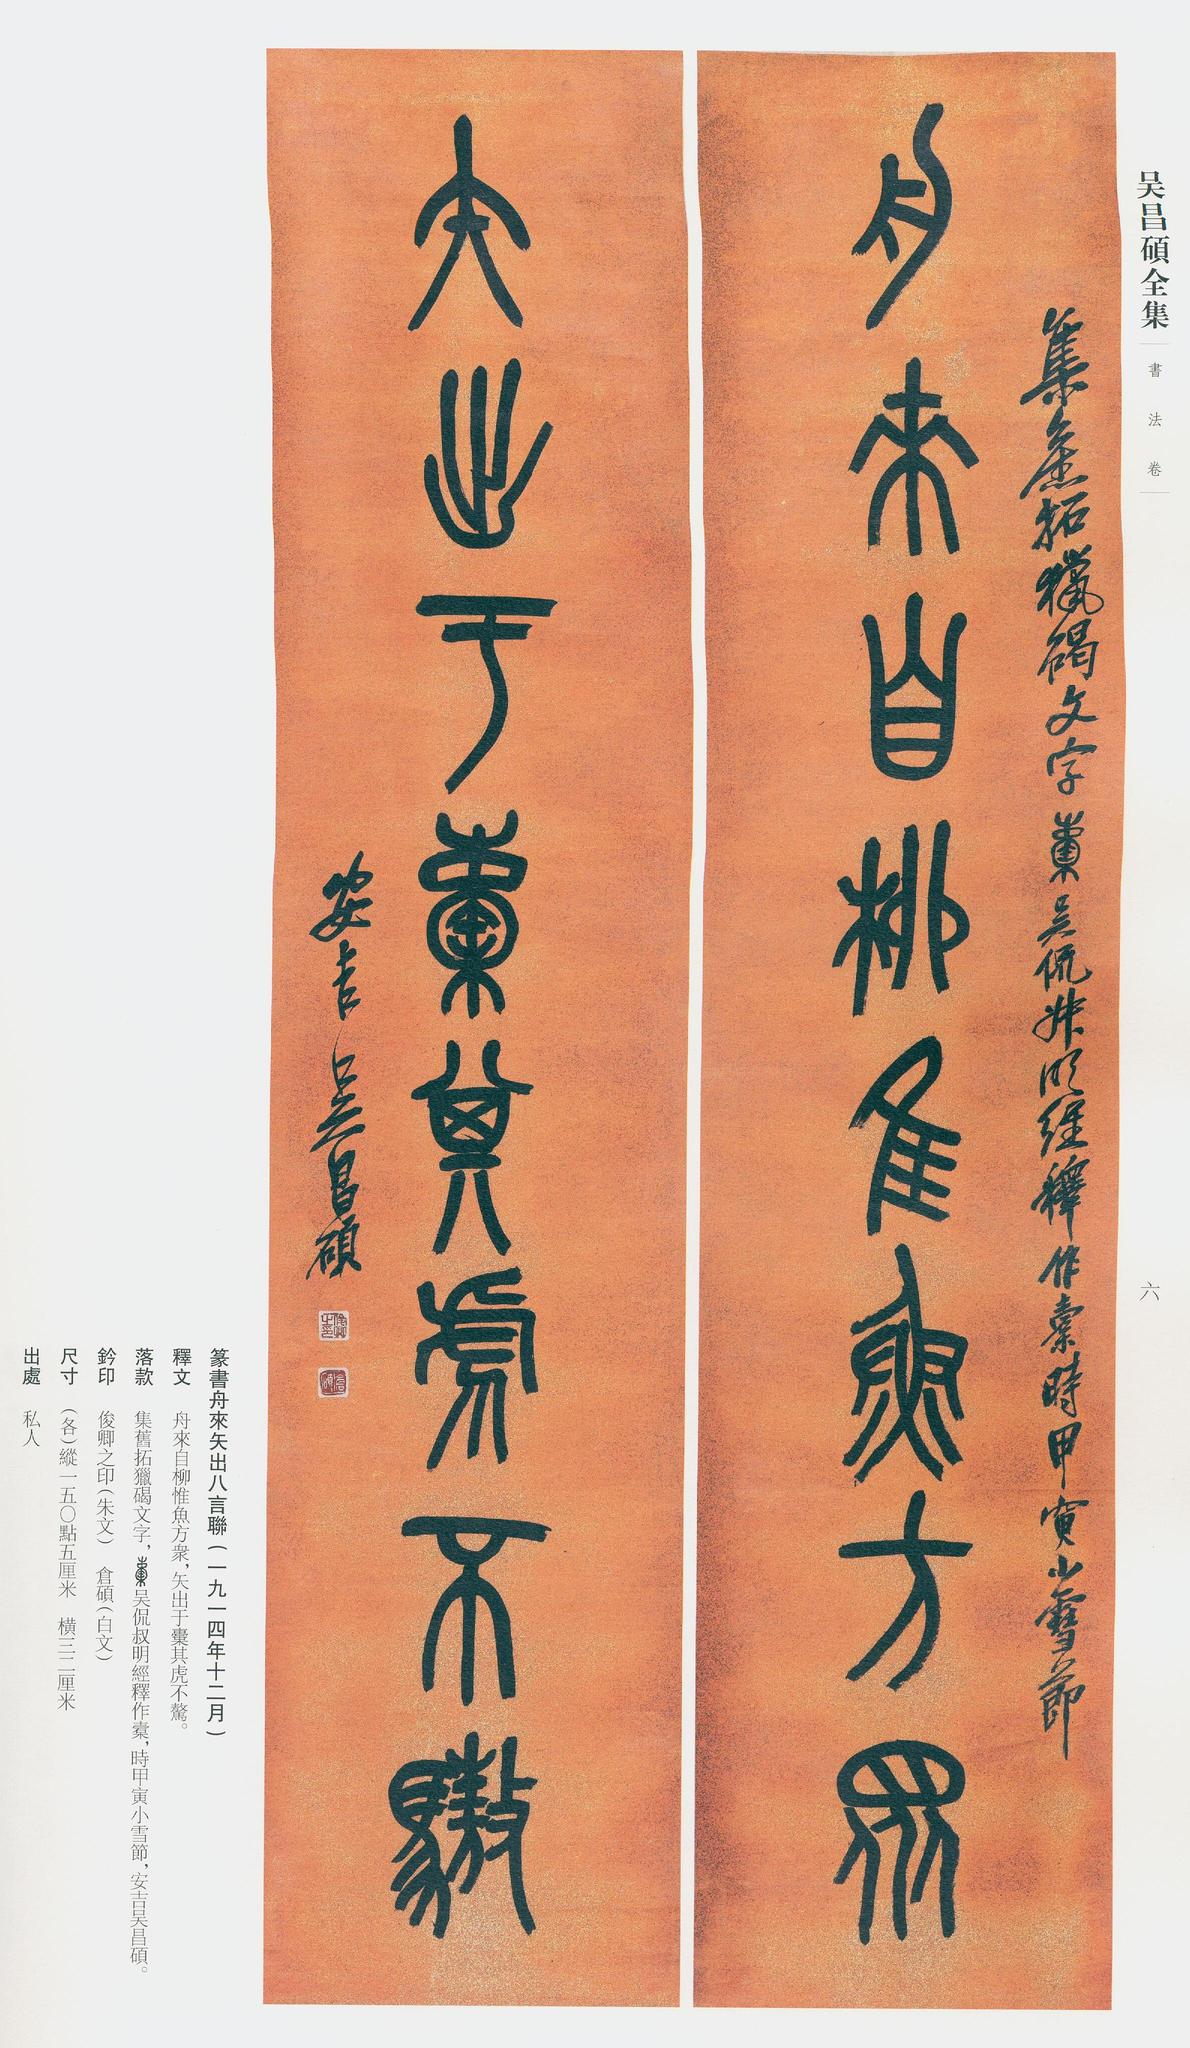 吴昌碩全集
書法卷
六
集舊拓獵碣文字
吴侃叔明經釋作橐時甲寅小雪節
舟來自柳惟魚方衆
矢出于橐其虎不驁
安吉吴昌碩
俊卿之印
倉碩
篆書舟來矢出八言聯(一九一四年十二月)
釋文 舟來自柳惟魚方衆,矢出于橐其虎不驁。
落款 集舊拓獵碣文字,吴侃叔明經釋作橐,時甲寅小雪節,安吉吴昌碩。
鈐印 俊卿之印(朱文) 倉碩(白文)
尺寸 (各)縱一五〇點五厘米 橫三二厘米
出處 私人